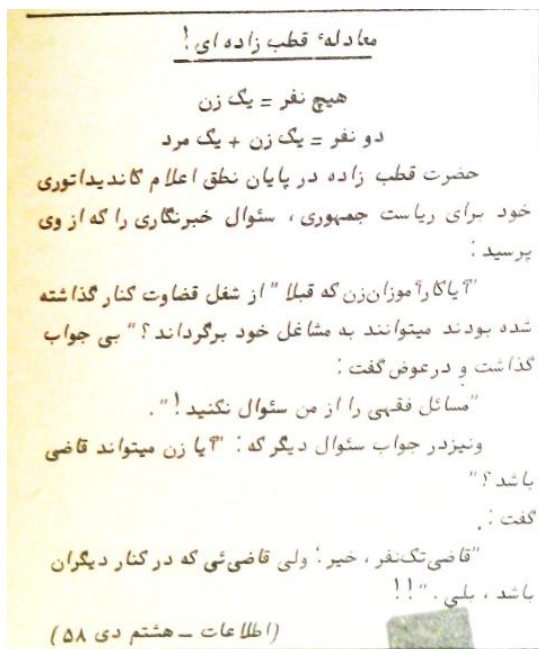 معادلهٔ قطب زاده ای!
هیچ نفر = یک زن
دو نفر = یک زن + یک مرد
حضرت قطب زاده در پایان نطق اعلام کاندیداتوری
خود برای ریاست جمهوری، سئوال خبرنگاری را که از وی
پرسید:
"آیا کارآموزان زن که قبلا" از شغل قضاوت کنار گذاشته
شده بودند میتوانند به مشاغل خود برگرداند؟" بی جواب
گذاشت و درعوض گفت:
"مسائل فقهی را از من سئوال نکنید!".
ونیزدر جواب سئوال دیگر که: "آیا زن میتواند قاضی
باشد؟"
گفت:
"قاضی تک‌نفر، خیر؛ ولی قاضی‌ئی که در کنار دیگران
باشد، بلی."!!
(اطلاعات ــ هشتم دی ۵۸)